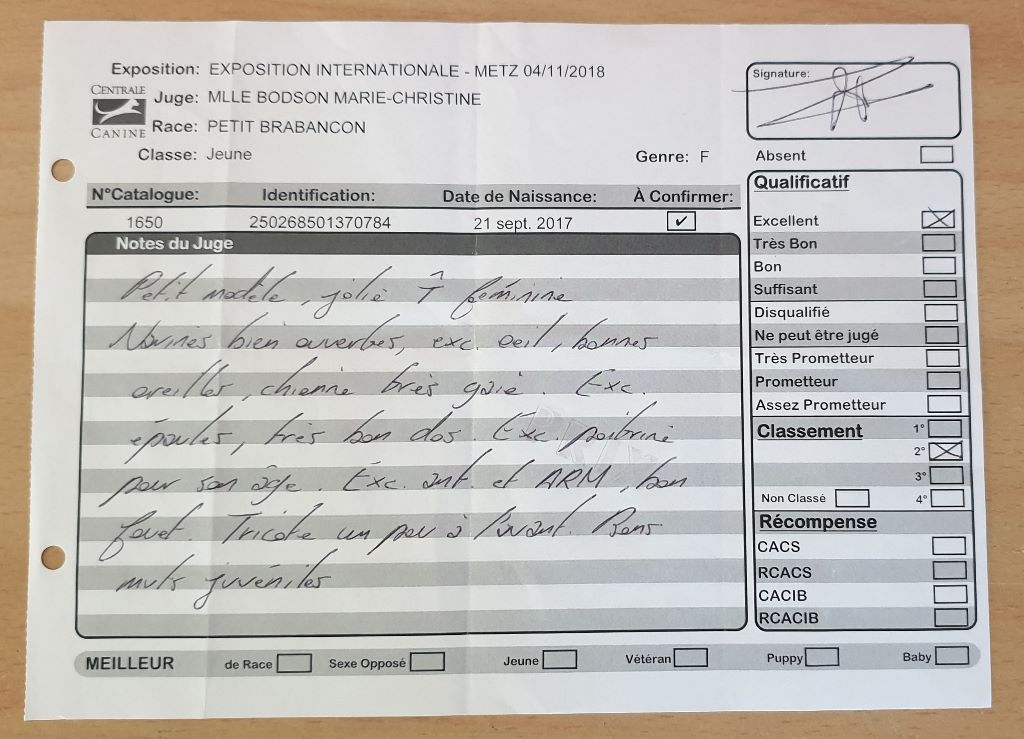 Exposition: EXPOSITION INTERNATIONALE - METZ 04/11/2018
CENTRALE CANINE
Juge: MLLE BODSON MARIE-CHRISTINE
Race: PETIT BRABANCON
Classe: Jeune Genre: F
N°Catalogue: Identification: Date de Naissance: À Confirmer:
1650 250268501370784 21 sept. 2017 ✔
Notes du Juge
Petit modèle, jolie T̂ féminine
Narines bien ouvertes, exc. oeil, bonnes
oreilles, chienne très gaie. Exc.
épaules, très bon dos. Exc. poitrine
pour son âge. Exc. ant. et ARM, bon
fouet. Tricote un peu à l'avant. Bons
mvts juvéniles
Signature:
Absent
Qualificatif
Excellent
Très Bon
Bon
Suffisant
Disqualifié
Ne peut être jugé
Très Prometteur
Prometteur
Assez Prometteur
Classement 1°
2°
3°
Non Classé 4°
Récompense
CACS
RCACS
CACIB
RCACIB
MEILLEUR de Race Sexe Opposé Jeune Vétéran Puppy Baby